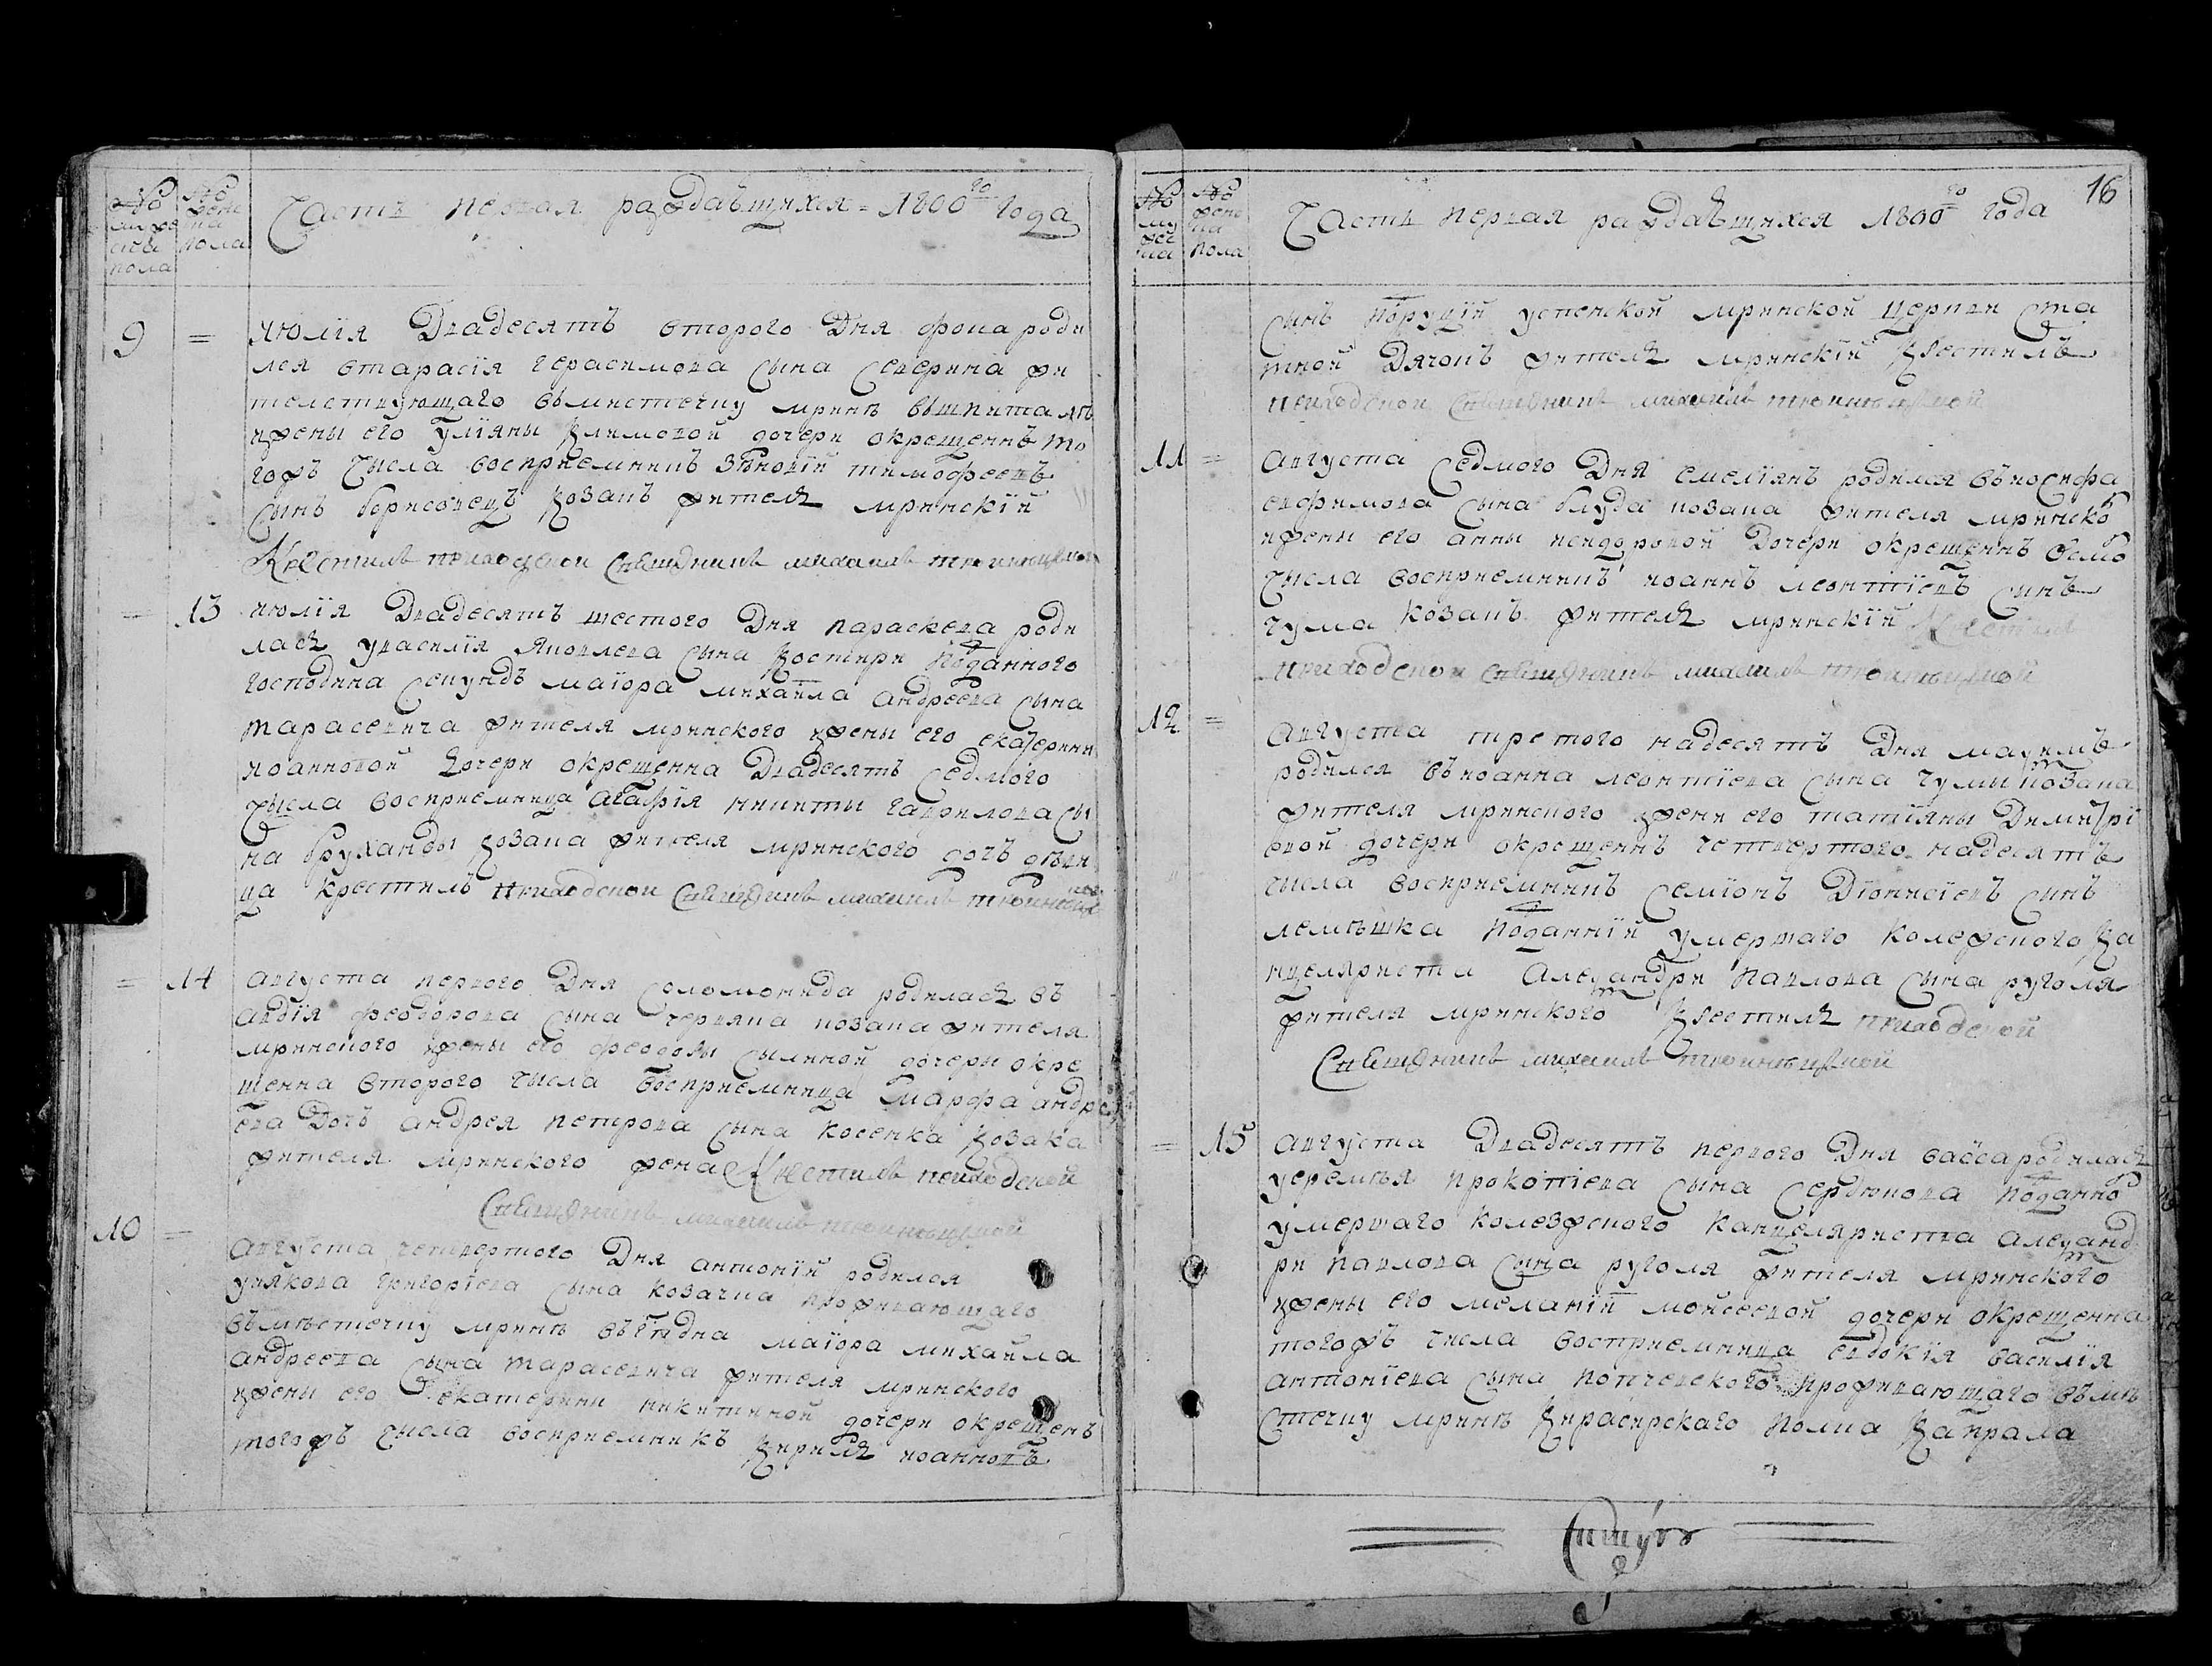 № мужеска пола
№ женска пола
Часть первая раждавшихся = 1800го года
9 = июлія Двадесятъ второго Дня фома роди
лся втарасія герасимова сына северина жи
телствующаго вмистечку мринѣ
жены его Уліяны климовой дочери окрещеннъ то
гожъ числа восприемникъ Зѣновій тимофеевъ
сынъ борисовецъ козакъ жителъ мринскій
Крестилъ приходской Священникъ михаилъ
= 13 июлія Двадесятъ шестого Дня параскева роди
лась увасилія Яковлева сына костыри поданного
господина секундъ маіора михайла андреева сына
тарасевича жителя мринского жены его екатерини
иоанновой дочери окрещенна Двадесятъ седмого
числа восприемница агафія никиты гаврилова сы
на бруханды козака жителя мринского дочъ дѣви
ца крестилъ приходской Священникъ михаилъ
= 14 августа первого Дня соломонида родилась въ
авдія феодорова сына червяка козака жителя
мринского жены его феодоры сылиной дочеры окре
щенна второго числа восприемница марфа андре
ева дочъ андрея петрова сына косенка козака
жителя мринского жена Крестилъ приходской
Священникъ михаилъ
10 = августа четвертого Дня антоній родился
уиякова григоріева сына козачка проживающаго
вмѣстечку мринѣ маіора михайла
андреева сына тарасевича жителя мринского
жены его екатерини никитиной дочери окрещенъ
тогожъ числа восприемникъ кирилъ иоанновъ
16
№ мужеска
№ женска пола
Часть первая раждавшихся 1800го года
сынъ поруцій успенской мринской церкви ста
тной Дячокъ жителъ мринскій крестилъ
приходской Священникъ михаилъ
11 = августа седмого Дня емеліянъ родился въиосифа
евфимова сына блуда козака жителя мринско
жены его анны
дочери окрещеннъ осмо
числа восприемникъ иоаннъ леонтіевъ сынъ
чума козакъ жителъ мринскій Крестилъ
приходской Священникъ михаилъ
12 = августа третого надесятъ Дня маѯимъ
родился въиоанна леонтіева сына чумы козака
жителя мринского жени его татіяны Димитрі
евой дочери окрещеннъ четвертого надесятъ
числа восприемникъ семіонъ Діонисіевъ сынъ
лемѣшка поданній умершаго колежского ка
нцеляриста алеѯандри павлова сына руголя
жителя мринского крестилъ приходской
Священникъ михаилъ
= 15 августа Двадесятъ первого Дня васса родилась
уеремѣя прокопіева сына сердюкова поданно
умершаго колезжского канцеляриста алеѯанд
ри павлова сына руголя жителя мринского
жены его меланій мойсеевой дочери окрещенна
тогожъ числа восприемница евдокія василія
антоніева сына попчевского проживающаго въмѣ
стечку мринѣ кирасирскаго полка капрала